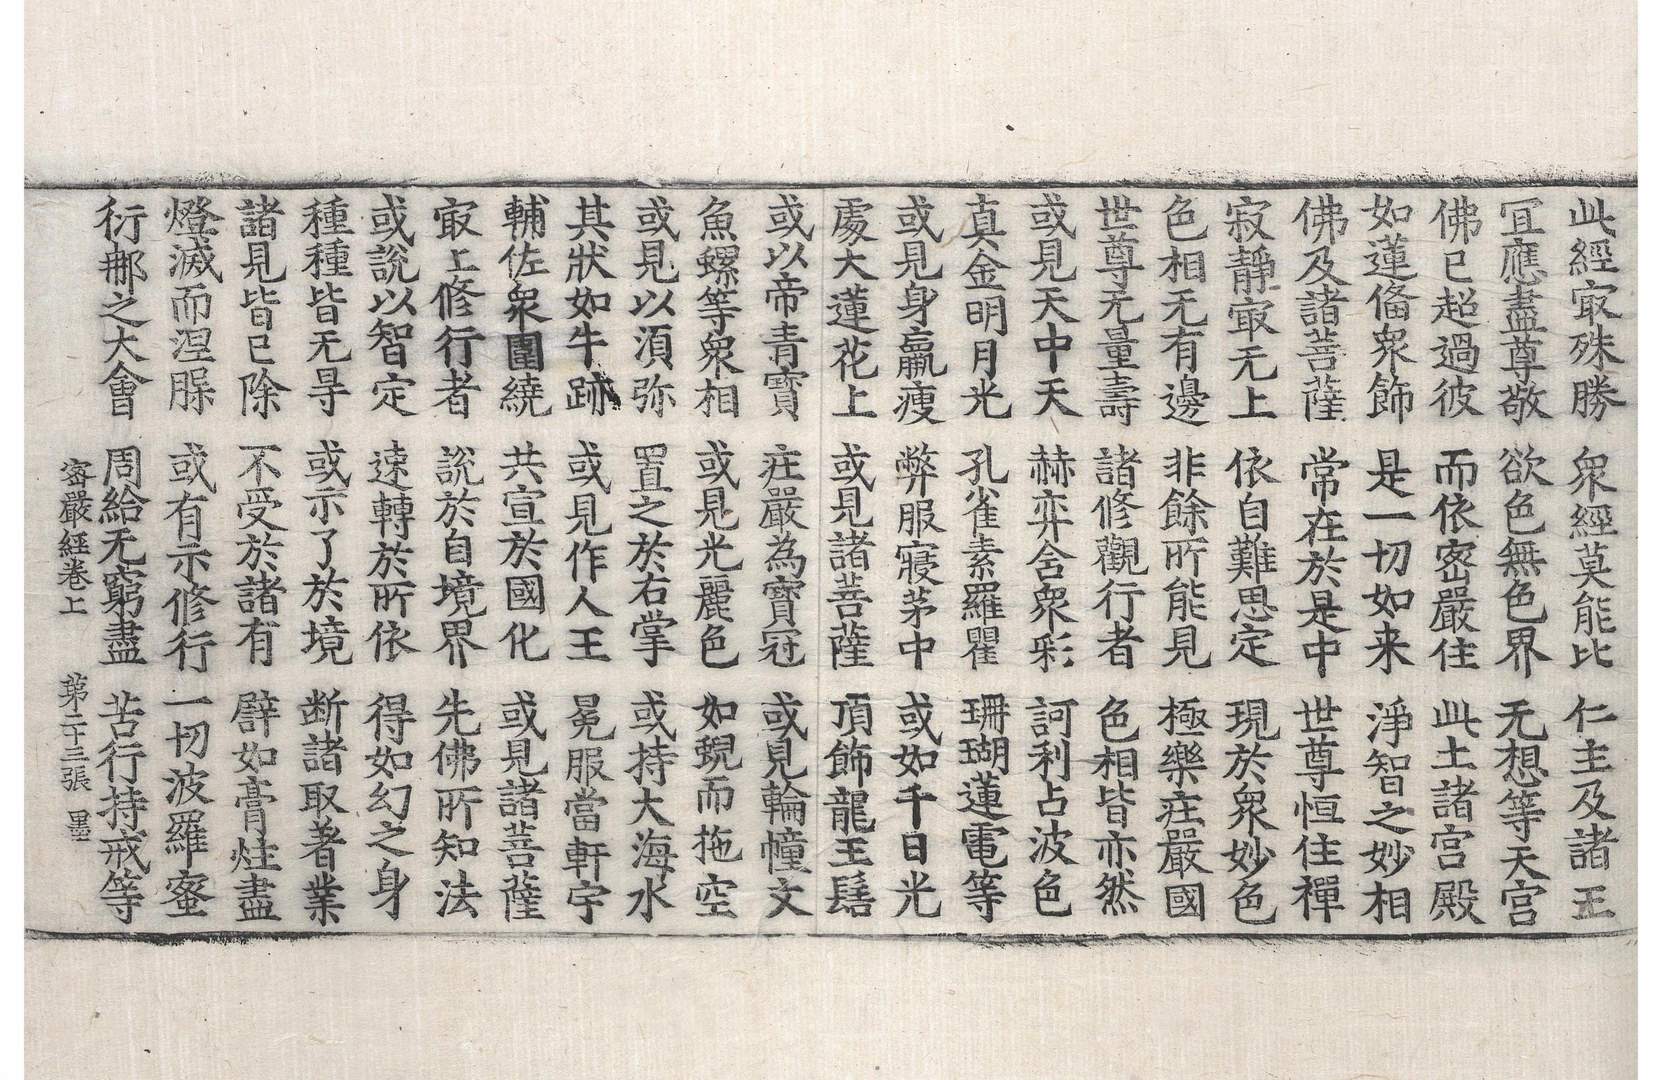 此經㝡殊勝 衆經莫能比 仁主及諸王
冝應盡尊敬 欲色無色界 无想等天宫
佛已超過彼 而依宻嚴住 此土諸宫殿
如蓮俻衆飾 是一切如来 淨智之妙相
佛及諸菩薩 常在於是中 世尊恒住禪
寂靜㝡无上 依自難思定 現於衆妙色
色相无有邊 非餘所能見 極樂庄嚴國
世尊无量壽 諸修觀行者 色相皆亦然
或見天中天 赫弈含衆彩 訶利占波色
真金明月光 孔雀素羅瞿 珊瑚蓮電等
或見身羸瘦 弊服寢茅中 或如千日光
處大蓮花上 或見諸菩薩 頂飾龍王髻
或以帝青寳 庄嚴為寳冠 或見輪幢文
魚螺等衆相 或見光麗色 如蜺而拖空
或見以湏弥 置之於右掌 或持大海水
其狀如牛跡 或見作人王 冕服當軒宇
輔佐衆圍繞 共宣於國化 或見諸菩薩
㝡上修行者 說於自境界 先佛所知法
或說以智定 速轉於所依 得如幻之身
種種皆无㝵 或示了於境 断諸取著業
諸見皆已除 不受於諸有 譬如膏炷盡
燈滅而涅䐁 或有示修行 一切波羅蜜
衍𨚗之大會 周給无窮盡 苦行持戒等
宻嚴經卷上 第二十三張 墨